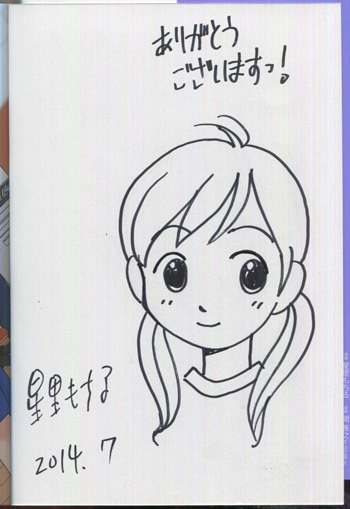 ありがとう
ございますっ!
星里もちる
2014.7